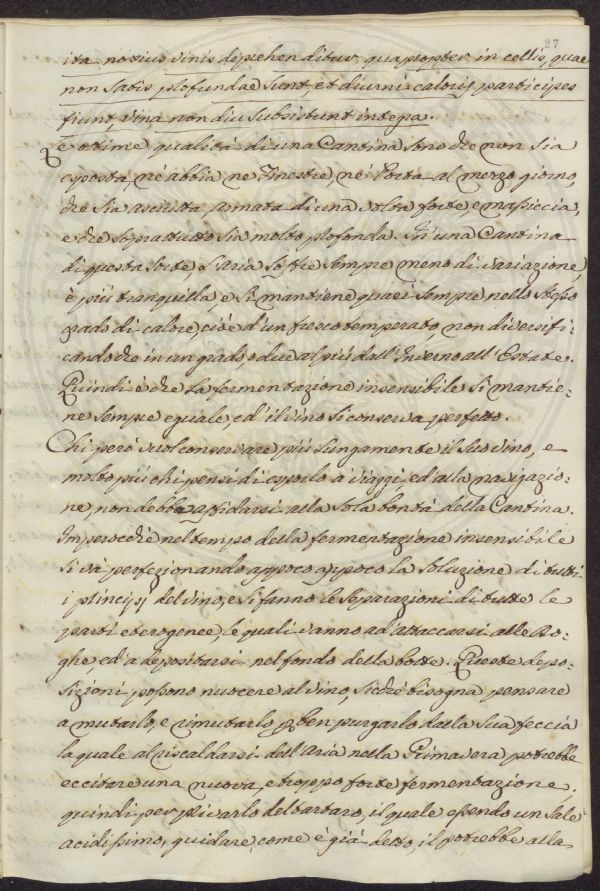 27
ita noxius vinis deprehenditur, quapropter in cellis, quae
non satis profundae sunt et diurni caloris participes
fiunt, vina non diu subsistunt integra.
E ottime qualità di una Cantina sono che non sia
esposta, nè abbia nè Finestre, nè Porta al mezzo giorno,
che sia asciutta, armata di una volta forte, e massiccia,
e che soprattutto sia molto profonda. In una Cantina
di questa sorte, l'Aria soffre sempre meno di variazione,
è più tranquilla, e si mantiene quasi sempre nello stesso
grado di calore, cioè d'un fresco temperato, non diversifi=
cando che in un grado, o due al più dall'Inverno all'Estate.
Quindi è che la fermentazione insensibile si mantie=
ne sempre eguale, ed il vino si conserva perfetto.
Chi però vuol conservare più lungamente il suo vino, e
molto più chi pensi di esporlo a viaggi, ed alla navigazio=
ne, non debbe affidarsi alla sola bontà della Cantina.
Imperocchè nel tempo della fermentazione insensibile
si và perfezionando appoco appoco la soluzione di tutti
i principj del vino, e si fanno le separazioni di tutte le
parti eterogenee, le quali vanno ad attaccarsi alle Do=
ghe, ed a depositarsi nel fondo della botte. Queste depo=
sizioni possono nuocere al vino, sicchè bisogna pensare
a mutarlo, e rimutarlo p ben purgarlo dalla sua feccia
la quale al riscaldarsi dell'Aria nella Primavera potrebbe
eccitare una nuova, e troppo forte fermentazione.
quindi per privarlo del tartaro, il quale essendo un sale
acidissimo, guidare, come è già detto, il potrebbe alla